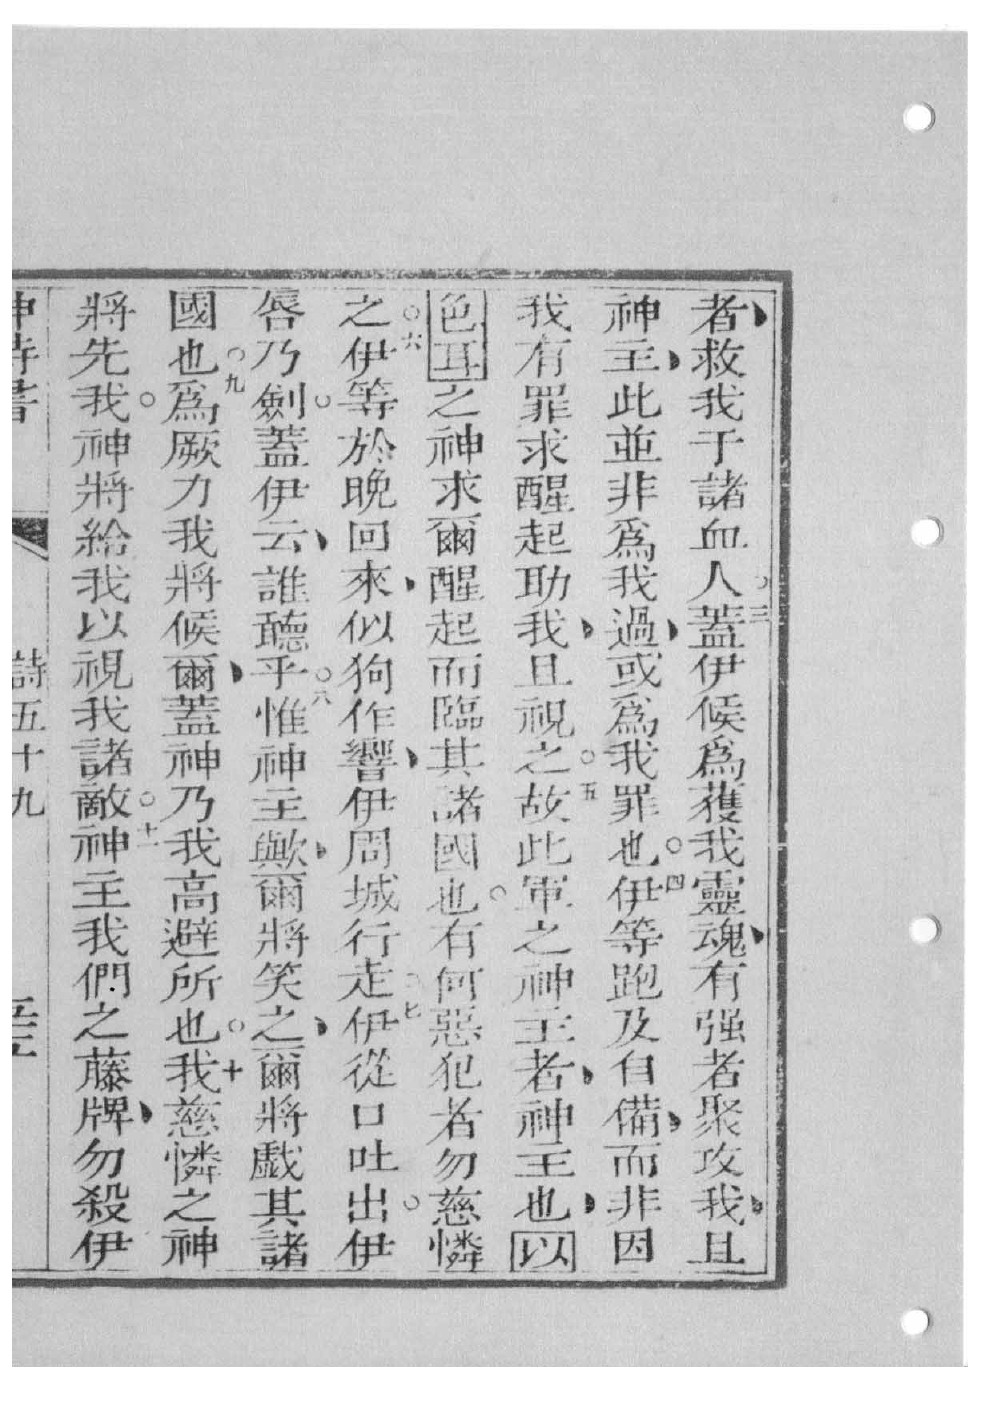 者救我于諸血人○三蓋伊候爲獲我靈魂有强者聚攻我且
神主此並非爲我過或爲我罪也○四伊等跑及自備而非因
我有罪求醒起助我且視之○五故此軍之神主者神主也以
色耳之神求爾醒起而臨其諸國也○有何惡犯者勿慈憐
之○六伊等於晚回來似狗作響伊周城行走○七伊從口吐出○伊
唇乃劍○蓋伊云誰聽乎○八惟神主歟爾將笑之爾將戲其諸
國也○九爲厥力我將候爾蓋神乃我高避所也○十我慈憐之神
將先我○神將給我以視我諸敵○十一神主我們之藤牌勿殺伊
詩五十九